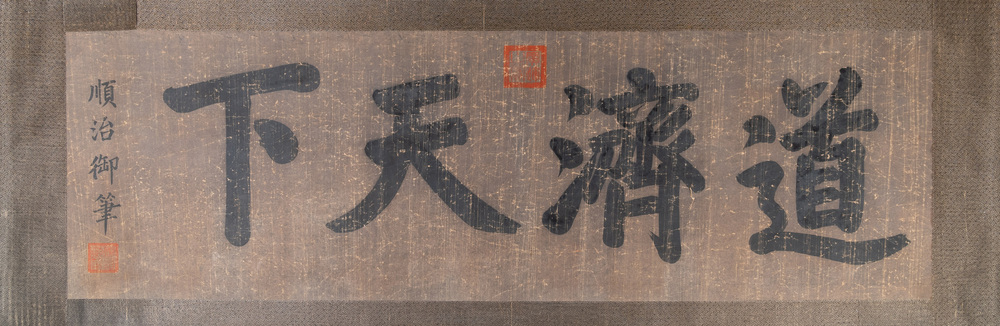 道濟天下
順治御筆